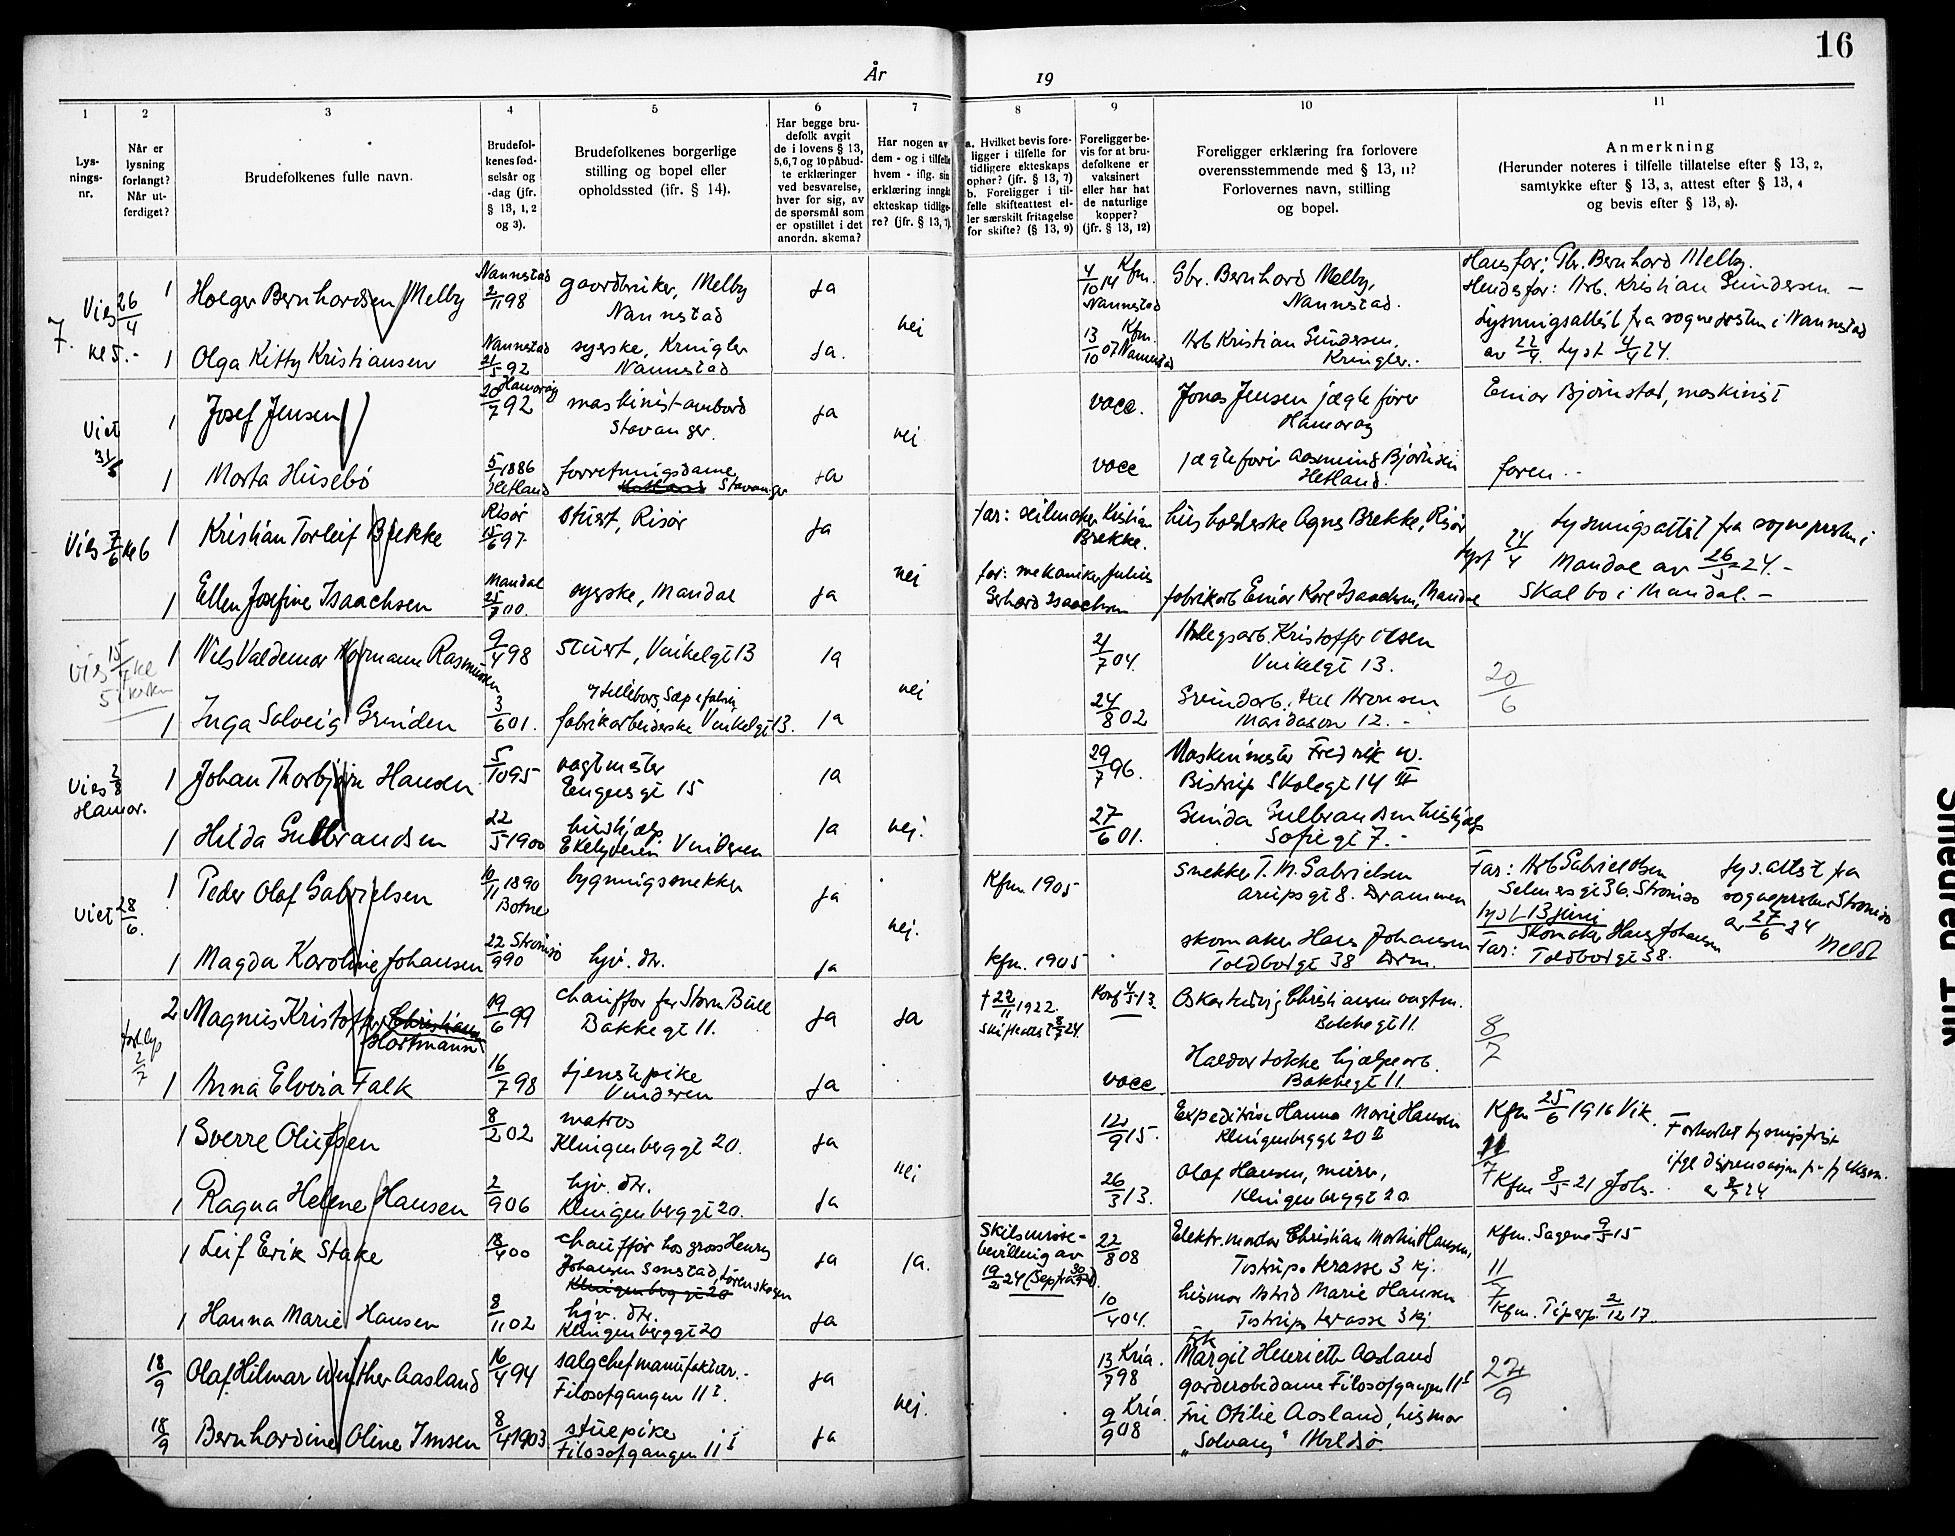 16
År
19
1
2
3
4
5
6
7
8
9
10
11
Lys-
nings-
nr.
Når er
lysning
forlangt?
Når ut-
ferdiget?
Brudefolkenes fulle navn.
Brudefol-
kenes fød-
selsår og
-dag (jfr.
§ 13, 1, 2
og 3).
Brudefolkenes borgerlige
stilling og bopel eller
opholdssted (jfr. § 14).
Har begge bru-
defolk avgit
de i lovens § 13,
5, 6, 7 og 10 påbud-
te erklæringer
ved besvarelse,
hver for sig, av
de spørsmål som
er opstillet i det
anordn. skema?
Har nogen av
dem - og i tilfelle
hvem - iflg. sin
erklæring inngått
ekteskap tidlige-
re? (jfr. § 13, 7).
a. Hvilket bevis fore-
ligger i tilfelle for
tidligere ekteskaps
ophør? (jfr. § 13, 7)
b. Foreligger i til-
felle skifteattest el-
ler særskilt fritagelse
for skifte? (§ 13, 9)
Foreligger be-
vis for at bru-
defolkene er
vaksinert
eller har hat
de naturlige
kopper?
(jfr. § 13, 12)
Foreligger erklæring fra forlovere
overensstemmende med § 13, 11?
Forlovernes navn, stilling
og bopel.
Anmerkning
(Herunder noteres i tilfelle tillatelse efter § 13, 2,
samtykke efter § 13, 3, attest efter § 13, 4
og bevis efter § 13, 8).
7.
Vies 26/4
kl 5.-
1 Holger Bernhardsen Melby
Nannestad
2/11 98
gaardbruker, Melby
Nannestad
Ja
nei
4/10 14 Kfm.
Nannestad
Gbr. Bernhard Melby,
Nannestad.
Hans far: Gbr. Bernhard Melby.
Hendes far: Arb. Kristian Gundersen. -
1 Olga Kitty Kristiansen
Nannestad
21/5 92
syerske, Kringler
Nannestad
Ja.
13/10 07 Kfm. Nannestad
Arb Kristian Gundersen,
Kringler.-
Lysningsattest fra sogneprsten i Nannestad
av 22/4. Lyst 4/4 24.
Viet
31/5
1 Josef Jensen
20/7 92 Hamarøy
maskinist ombord
Stavanger.
Ja
nei
vacc.
Jonas Jensen jægtefører
Hamarøy
Einar Bjørnstad, maskinist
1 Marta Husebø
5/5 1886
Hetland
forretningsdame
Stavanger
Ja
vacc
jægtefører Aasmund Bjørnsen
Hetland.
faren ..
Vies 7/6 kl 6
1 Kristian Torleif Brekke
Risør
15/6 97.
Stuert, Risør
Ja
nei
far: seilmaker Kristian
Brekke.
husholderske Agnes Brekke, Risør
lyst 24/4
Lysningsattest fra sogneprsten i
Mandal av 26/5 24.-
Skal bo i Mandal.-
1 Ellen Josefine Isaachsen
Mandal
25/7 00.
syerske, Mandal
Ja
far: mekaniker Julius
Gerhard Isaachsen
fabrikarb Einar Karl Isaachsen, Mandal
Vies 15/7 kl
5 i kirken
1 Nils Valdemar Normann Rasmussen
9/4 98
Stuert, Vinkelgt 13
Ja
nei
21/7 04.
Anlegsarb. Kristoffer Olsen
Vinkelgt 13.
20/6
1 Inga Solveig Grinden
3/6 01.
v/ Lilleborg Sæpefabrik
fabrikarbeiderske Vinkelgt 13.
Ja
24/8 02
Maridalsvn 12. -
Vies 2/8
Hamar.
1 Johan Thorbjørn Hansen
5/10 95
vagtmester
Engensgt 15
Ja
nei.
29/7 96.
Maskinmester Fredrik W.
Bistrup Skolegt 14 III
1 Hilda Gulbrandsen
22/5 1900
hushjælp
Ekelyveien Vinderen
Ja
27/6 01.
Gunda Gulbrandsen hushjælp
Sofiegt 7.-
Viet 28/6.
1 Peder Olaf Gabrielsen
10/11 1890
Botne
bygningssnekker
Ja
nei.
Kfm. 1905
Snekker T. M. Gabrielsen
Arupsgt 8. Drammen
Far: Arb Gabriel Olsen
Selmersgt 36. Strømsø
lyst 13 juni
Lys.attest fra
sogneprsten Strømsø
av 27/6 24
Meldt
1 Magda Karoline Johansen
22/9 90 Strømsø
hjv. dtr.
Ja
Kfm. 1905
Skomaker Hans Johansen
Toldbodgt 38 Drm.
Far: Skomaker Hans Johansen
Toldbodgt 38.
2 Magnus Kristoffer Christiansen
Hartmann
forl. lys
2/7
19/6 99
Chauffør for Storm Bull
Bakkegt 11.
Ja
Ja
† 22/11 1922.
Skifteattest 8/7 24.
Konf 4/5 13.
Oskar Ludvig Christiansen vagtm.
Bakkegt 11.
8/7
1 Anna Elvira Falk
16/7 98
tjenstepike
Vinderen
Ja
vacc
Haldor Løkke hjælpearb.
Bakkegt 11
1 Sverre Olufsen
8/2 02
matros
Klingenberggt 20.
Ja
nei
12/9 15.
Expeditrise Hanna Marie Hansen
Klingenberggt 20 II
Kfm 25/6 1916 Vik.
11/7
Forkortet lysningsfrist
ifgl dispensasjon fr. fylksm.
av 8/7 24
1 Ragna Helene Hansen
2/9 06
hjv. dtr.
Klingenberggt 20.
Ja
26/3 13.
Olaf Hansen, murer,
Klingenberggt 20
Kfm 8/5 21 Joh.
1 Leif Erik Stake
18/4 00
Chauffør hos gross Henry
Johansen Sonstad, Lørenskogen
Klingenberggt 20
Ja
Ja.
Skilsmisse-
bevilling av
19/2 24 (Sept fra 30/9 21).
22/8 08
Elektr.montør Christian Martin Hansen,
Tostrups terasse 3 kj.
Kfm. Sagene 9/5 15
11/7
1 Hanna Marie Hansen
8/11 02
hjv. dtr.
Klingenberggt 20
Ja
10/4 04.
husmor Astrid Marie Hansen
Tostrups terasse 3 kj.
Kfm. 2/12 17.
18/9
Olaf Hilmar Winther Aasland
16/4 94
salgschef manufaktur.-
Filosofgangen 11 I.
Ja
nei.
13/7 98 Kria.
Frk
Margit Henriette Aasland
garderobedame Filosofgangen 11 I
22/9
18/9
Bernhardine Oline Imsen
8/4 1903
stuepike
Filosofgangen 11 I
Ja
9/9 08 Kria.
Fru Otilie Aasland, husmor
„Solvang" Malsjø